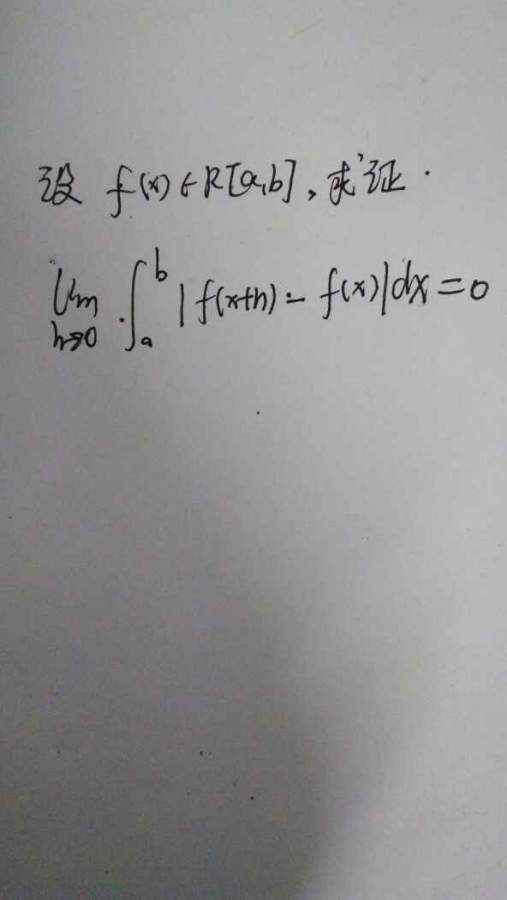 设 f(x)∈R[a,b],求证.
lim h→0 ∫_a^b |f(x+h)-f(x)|dx=0